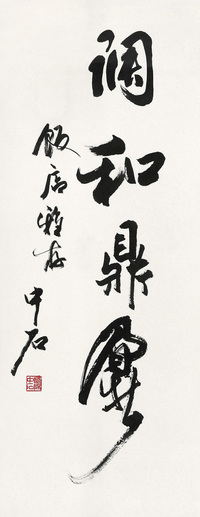 调和鼎鼐
飯店雅存
中石